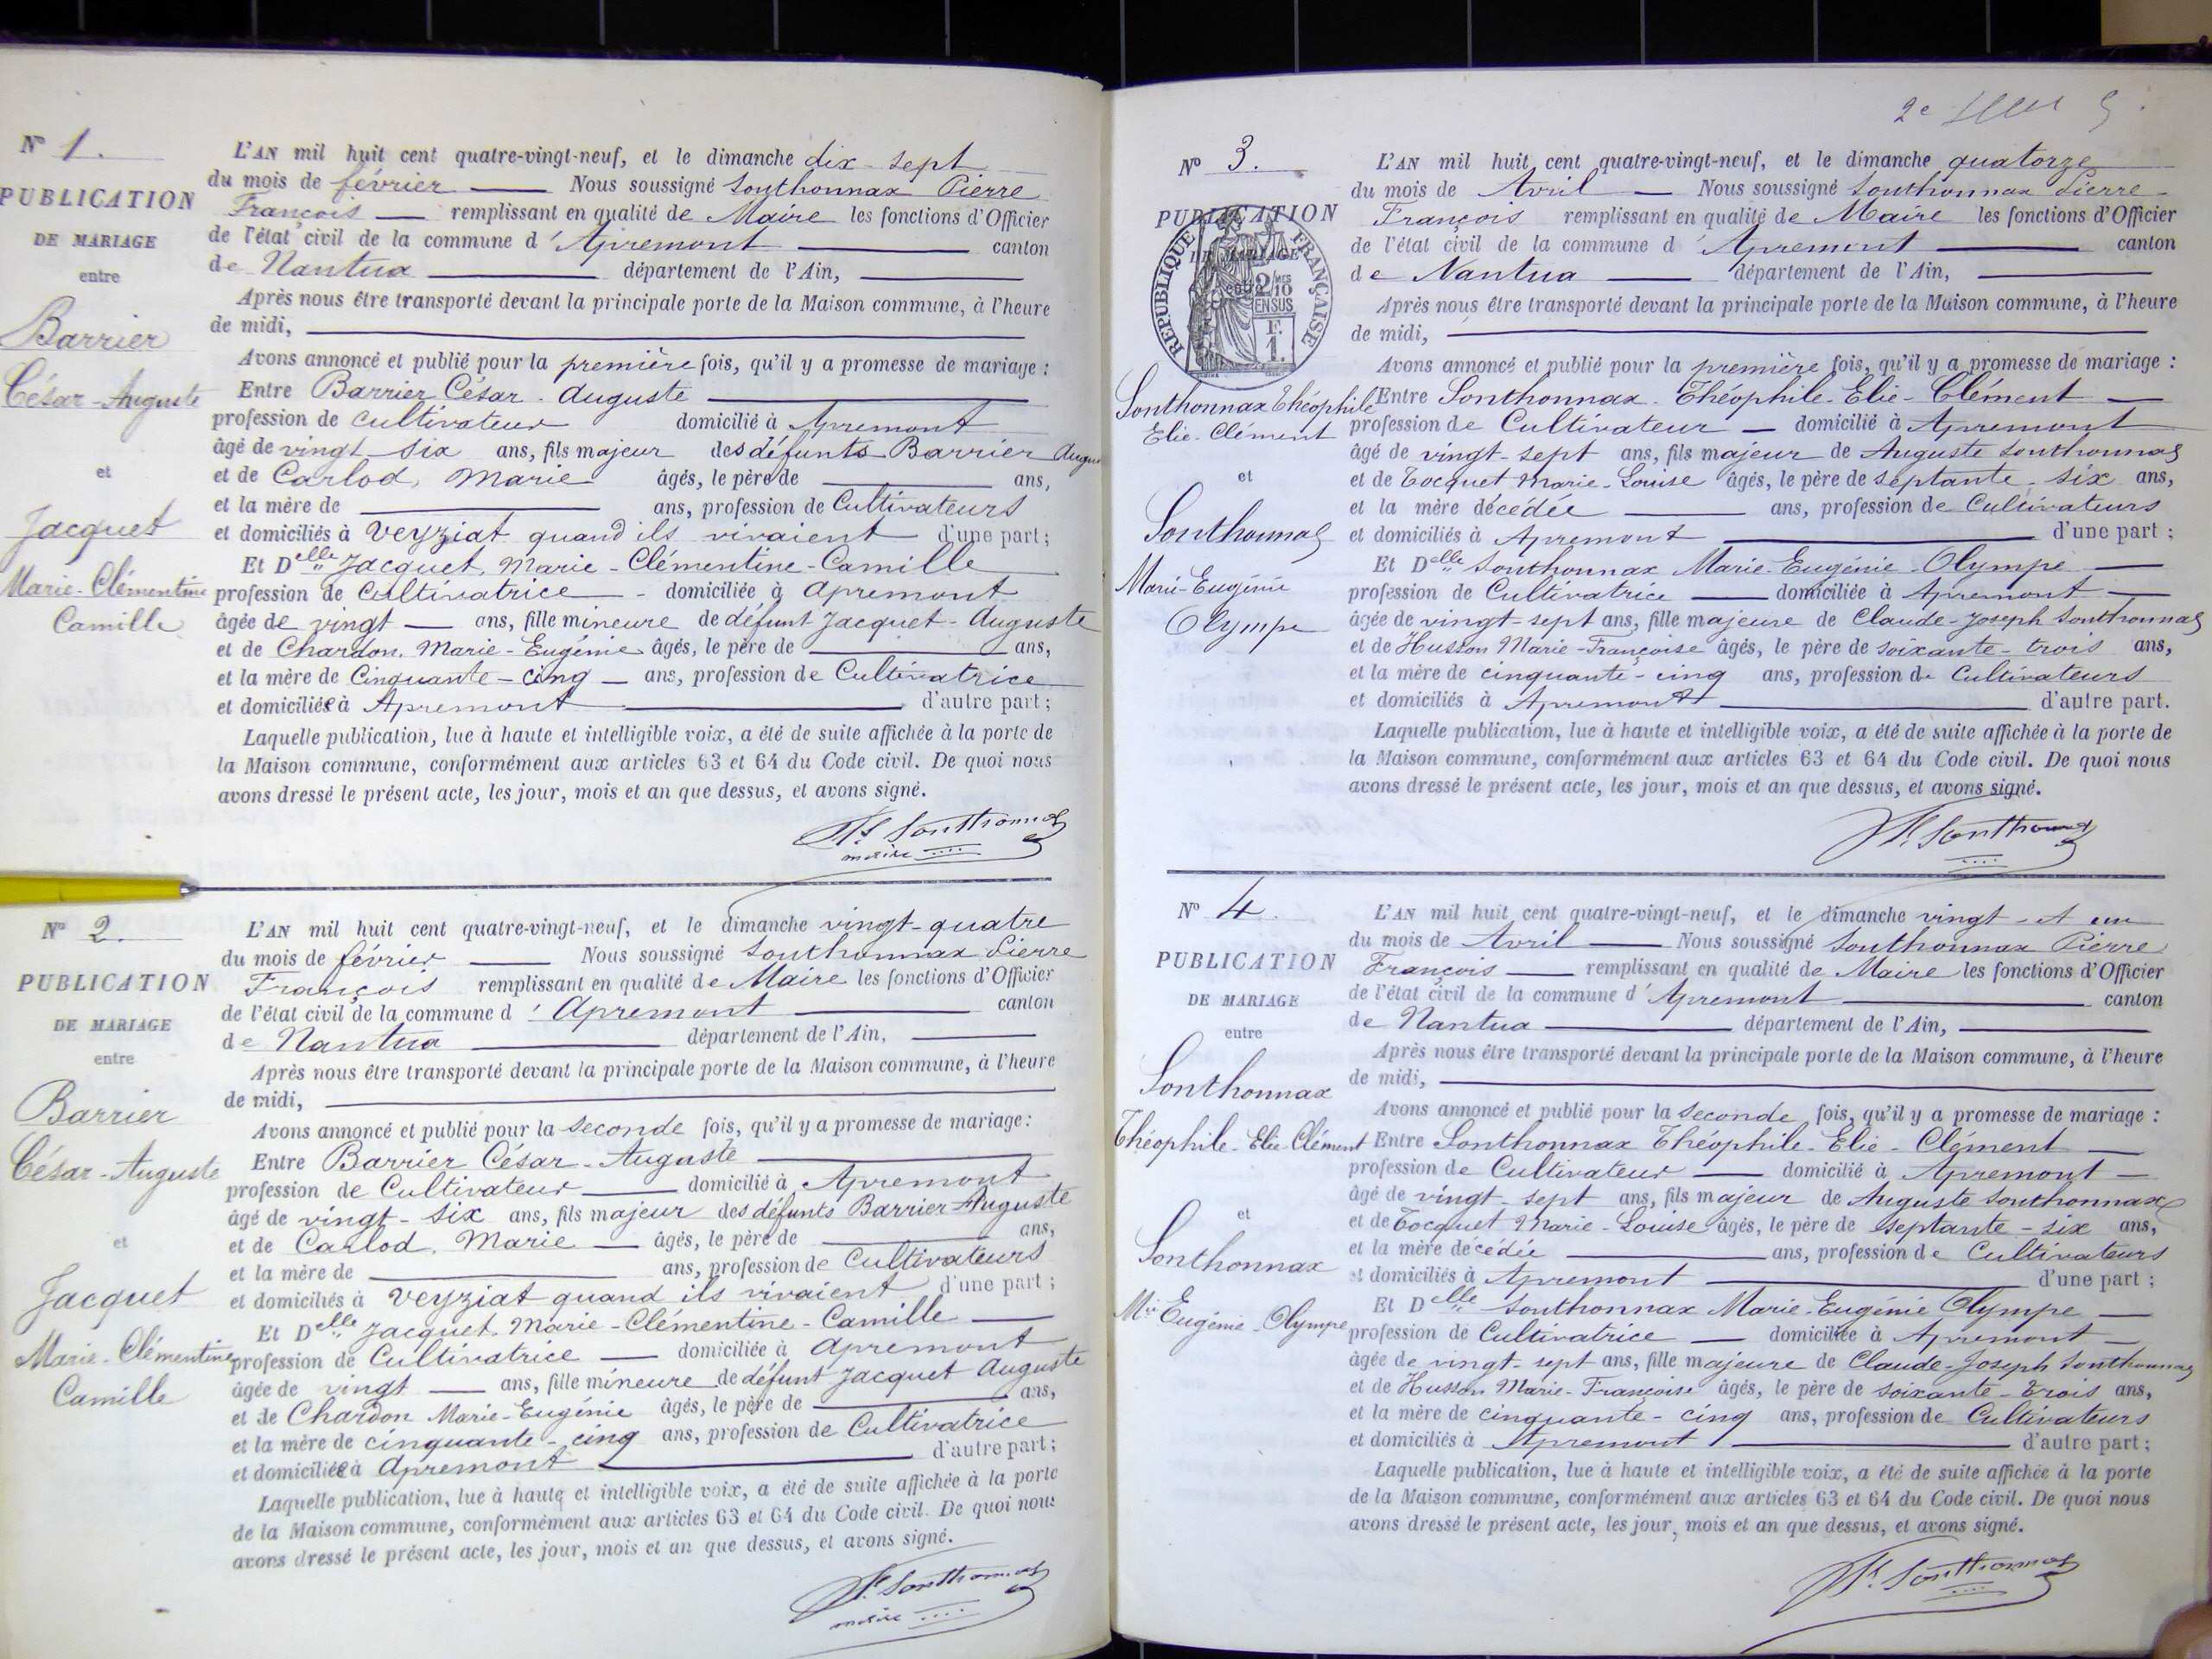 N° 1.
PUBLICATION
DE MARIAGE
entre
Barrier
César-Auguste
et
Jacquet
Marie-Clémentine
Camille
L'AN mil huit cent quatre-vingt-neuf, et le dimanche dix-sept
du mois de février Nous soussigné Sonthonnax Pierre
François remplissant en qualité de Maire les fonctions d'Officier
de l'état civil de la commune d'Apremont canton
de Nantua département de l'Ain,
Après nous être transporté devant la principale porte de la Maison commune, à l'heure
de midi,
Avons annoncé et publié pour la première fois, qu'il y a promesse de mariage :
Entre Barrier César-Auguste
profession de cultivateur domicilié à Apremont
âgé de vingt-six ans, fils majeur des défunts Barrier
et de Carlod, Marie âgés, le père de ans,
et la mère de ans, profession de Cultivateurs
et domiciliés à Veyziat quand ils vivaient d'une part ;
Et Delle Jacquet, Marie-Clémentine-Camille
profession de Cultivatrice - domiciliée à Apremont
âgée de vingt ans, fille mineure de défunt Jacquet-Auguste
et de Chardon, Marie-Eugénie âgés, le père de ans,
et la mère de Cinquante-cinq ans, profession de Cultivatrice
et domiciliée à Apremont d'autre part ;
Laquelle publication, lue à haute et intelligible voix, a été de suite affichée à la porte de
la Maison commune, conformément aux articles 63 et 64 du Code civil. De quoi nous
avons dressé le présent acte, les jour, mois et an que dessus, et avons signé.
Sonthonnax
maire
N° 2.
PUBLICATION
DE MARIAGE
entre
Barrier
César-Auguste
et
Jacquet
Marie-Clémentine
Camille
L'AN mil huit cent quatre-vingt-neuf, et le dimanche vingt-quatre
du mois de février Nous soussigné Sonthonnax Pierre
François remplissant en qualité de Maire les fonctions d'Officier
de l'état civil de la commune d'Apremont canton
de Nantua département de l'Ain,
Après nous être transporté devant la principale porte de la Maison commune, à l'heure
de midi,
Avons annoncé et publié pour la seconde fois, qu'il y a promesse de mariage :
Entre Barrier César-Auguste
profession de Cultivateur domicilié à Apremont
âgé de vingt-six ans, fils majeur des défunts Barrier Auguste
et de Carlod, Marie âgés, le père de ans,
et la mère de ans, profession de Cultivateurs
et domiciliés à Veyziat quand ils vivaient d'une part ;
Et Delle Jacquet, Marie-Clémentine-Camille
profession de Cultivatrice domiciliée à Apremont
âgée de vingt ans, fille mineure de défunt Jacquet Auguste
et de Chardon Marie-Eugénie âgés, le père de ans,
et la mère de cinquante-cinq ans, profession de Cultivatrice
et domiciliée à Apremont d'autre part ;
Laquelle publication, lue à haute et intelligible voix, a été de suite affichée à la porte
de la Maison commune, conformément aux articles 63 et 64 du Code civil. De quoi nous
avons dressé le présent acte, les jour, mois et an que dessus, et avons signé.
Sonthonnax
maire
2e
N° 3.
PUBLICATION
DE MARIAGE
REPUBLIQUE FRANÇAISE
2/10
EN SUS
1 F.
Sonthonnax Théophile
Elie-Clément
et
Sonthonnax
Marie-Eugénie
Olympe
L'AN mil huit cent quatre-vingt-neuf, et le dimanche quatorze
du mois de Avril Nous soussigné Sonthonnax Pierre
François remplissant en qualité de Maire les fonctions d'Officier
de l'état civil de la commune d'Apremont canton
de Nantua département de l'Ain,
Après nous être transporté devant la principale porte de la Maison commune, à l'heure
de midi,
Avons annoncé et publié pour la première fois, qu'il y a promesse de mariage :
Entre Sonthonnax-Théophile-Elie-Clément
profession de Cultivateur domicilié à Apremont
âgé de vingt-sept ans, fils majeur de Auguste Sonthonnax
et de Tocquet Marie-Louise âgés, le père de septante-six ans,
et la mère décédée ans, profession de Cultivateurs
et domiciliés à Apremont d'une part ;
Et Delle Sonthonnax Marie-Eugénie-Olympe
profession de Cultivatrice domiciliée à Apremont
âgée de vingt-sept ans, fille majeure de Claude-Joseph Sonthonnax
et de Husson Marie-Françoise âgés, le père de soixante-trois ans,
et la mère de cinquante-cinq ans, profession de Cultivateurs
et domiciliés à Apremont d'autre part.
Laquelle publication, lue à haute et intelligible voix, a été de suite affichée à la porte de
la Maison commune, conformément aux articles 63 et 64 du Code civil. De quoi nous
avons dressé le présent acte, les jour, mois et an que dessus, et avons signé.
Sonthonnax
N° 4.
PUBLICATION
DE MARIAGE
entre
Sonthonnax
Théophile-Elie-Clément
et
Sonthonnax
Mie Eugénie-Olympe
L'AN mil huit cent quatre-vingt-neuf, et le dimanche vingt-et un
du mois de Avril Nous soussigné Sonthonnax Pierre
François remplissant en qualité de Maire les fonctions d'Officier
de l'état civil de la commune d'Apremont canton
de Nantua département de l'Ain,
Après nous être transporté devant la principale porte de la Maison commune, à l'heure
de midi,
Avons annoncé et publié pour la seconde fois, qu'il y a promesse de mariage :
Entre Sonthonnax Théophile-Elie-Clément
profession de Cultivateur domicilié à Apremont
âgé de vingt-sept ans, fils majeur de Auguste Sonthonnax
et de Tocquet Marie-Louise âgés, le père de septante-six ans,
et la mère décédée ans, profession de Cultivateurs
et domiciliés à Apremont d'une part ;
Et Delle Sonthonnax Marie-Eugénie Olympe
profession de Cultivatrice domiciliée à Apremont
âgée de vingt-sept ans, fille majeure de Claude-Joseph Sonthonnax
et de Husson Marie-Françoise âgés, le père de soixante-trois ans,
et la mère de cinquante-cinq ans, profession de Cultivateurs
et domiciliés à Apremont d'autre part ;
Laquelle publication, lue à haute et intelligible voix, a été de suite affichée à la porte
de la Maison commune, conformément aux articles 63 et 64 du Code civil. De quoi nous
avons dressé le présent acte, les jour, mois et an que dessus, et avons signé.
Sonthonnax